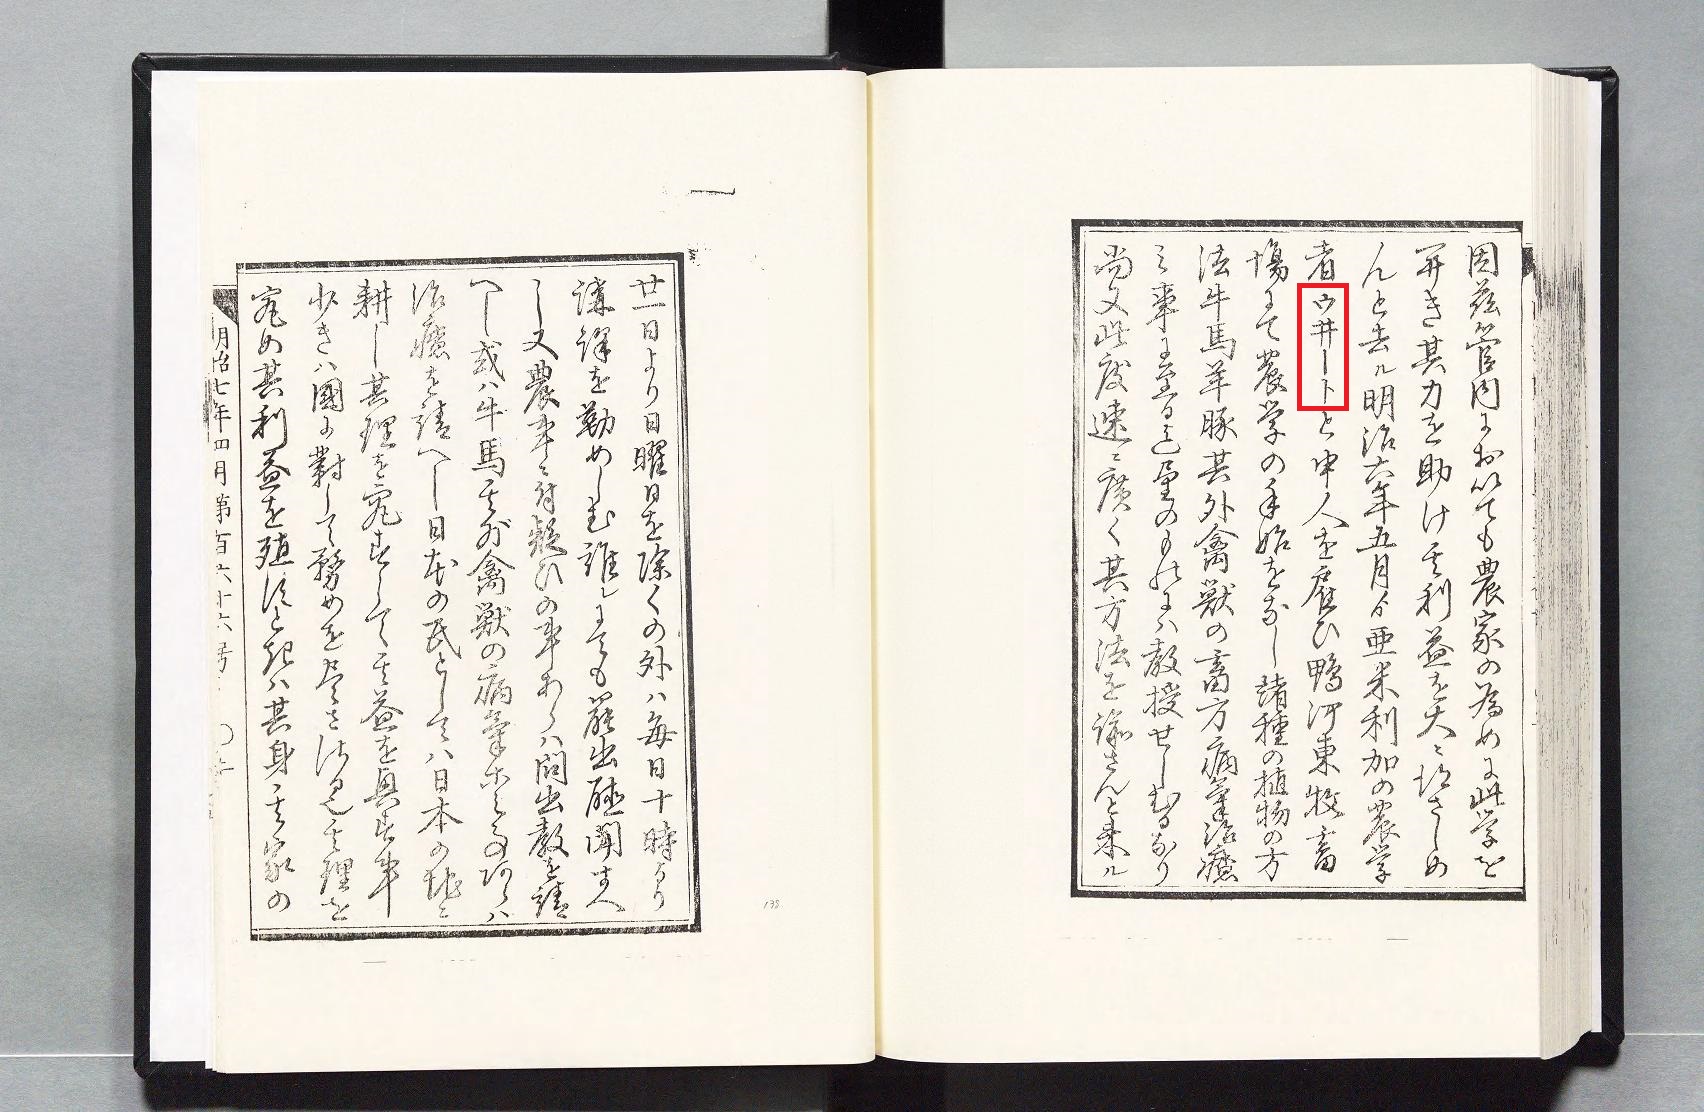 因茲管内ニおいても農家の為めに此学を
開き其力を助け其利益を大ニ起さしめ
んと去ル明治六年五月より亜米利加の農学
者ウ井ート と申人を雇ひ鴨河東牧畜
場にて農学の手始をなし諸種の植物の方
法牛馬羊豚其外禽獣の畜方病気治療
之事に至る迄望のものにハ教授せしむるなり
尚又此度速ニ広く其方法を諭さんと来ル
廿一日より日曜日を除くの外ハ毎日十時より
講釈を勤めしむ誰にても罷出聴聞すへ
し又農事ニ付疑ひの事あらハ問出教を請
へし或ハ牛馬其外禽獣の病気等之事あらハ
治療を請へし日本の民としてハ日本の地を
耕し其理を究すして其益を興す事
少きハ国に対して務めを尽さゝる也其理を
究め其利益を殖さんと起ハ其身其家の
明治七年四月第百六十六号